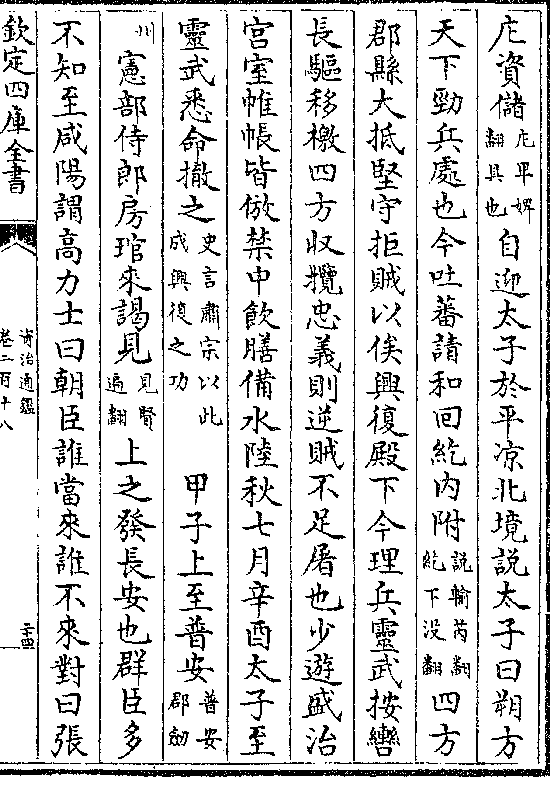 庀資儲庀卑婢翻具也自迎太子於平凉北境説太子曰朔方
天下勁兵處也今吐蕃請和回紇内附説輸芮翻紇下没翻四方
郡縣大抵堅守拒賊以俟興復殿下今理兵靈武按轡
長驅移檄四方收攬忠義則逆賊不足屠也少遊盛治
宫室帷帳皆倣禁中飲膳備水陸秋七月辛酉太子至
靈武悉命撤之史言肅宗以此成興復之功甲子上至普安普安郡劒
州憲部侍郎房琯來謁見見賢遍翻上之發長安也群臣多
不知至咸陽謂高力士曰朝臣誰當來誰不來對曰張
欽定四庫全書
資治通鑑
卷二百十八
二十四